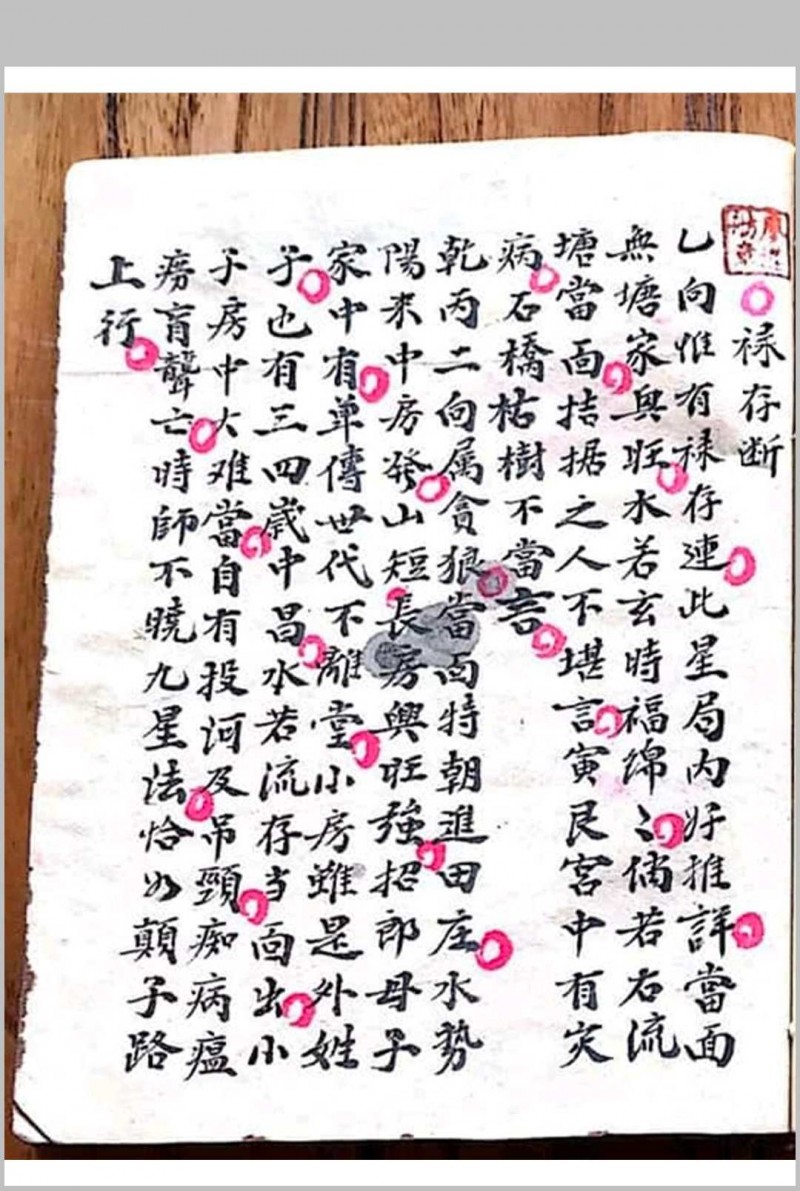 禄存断
乙向惟有禄存連此星局内好推詳當面
無塘家興旺水若玄時福绵〻倘若右流
塘當面拮据之人不堪言寅艮宫中有灾
病石橋枯樹不當言
乾丙二向属貪狼當面特朝進田庄水势
陽来中房發山短長房興旺強招郎母子
家中有单傳世代不離堂小房雖是外姓
子也有三四歲中昌水若流存当面出小
子房中大难當自有投河及吊頸痴病瘟
痨盲聾亡時師不曉九星法恰如顛子路
上行